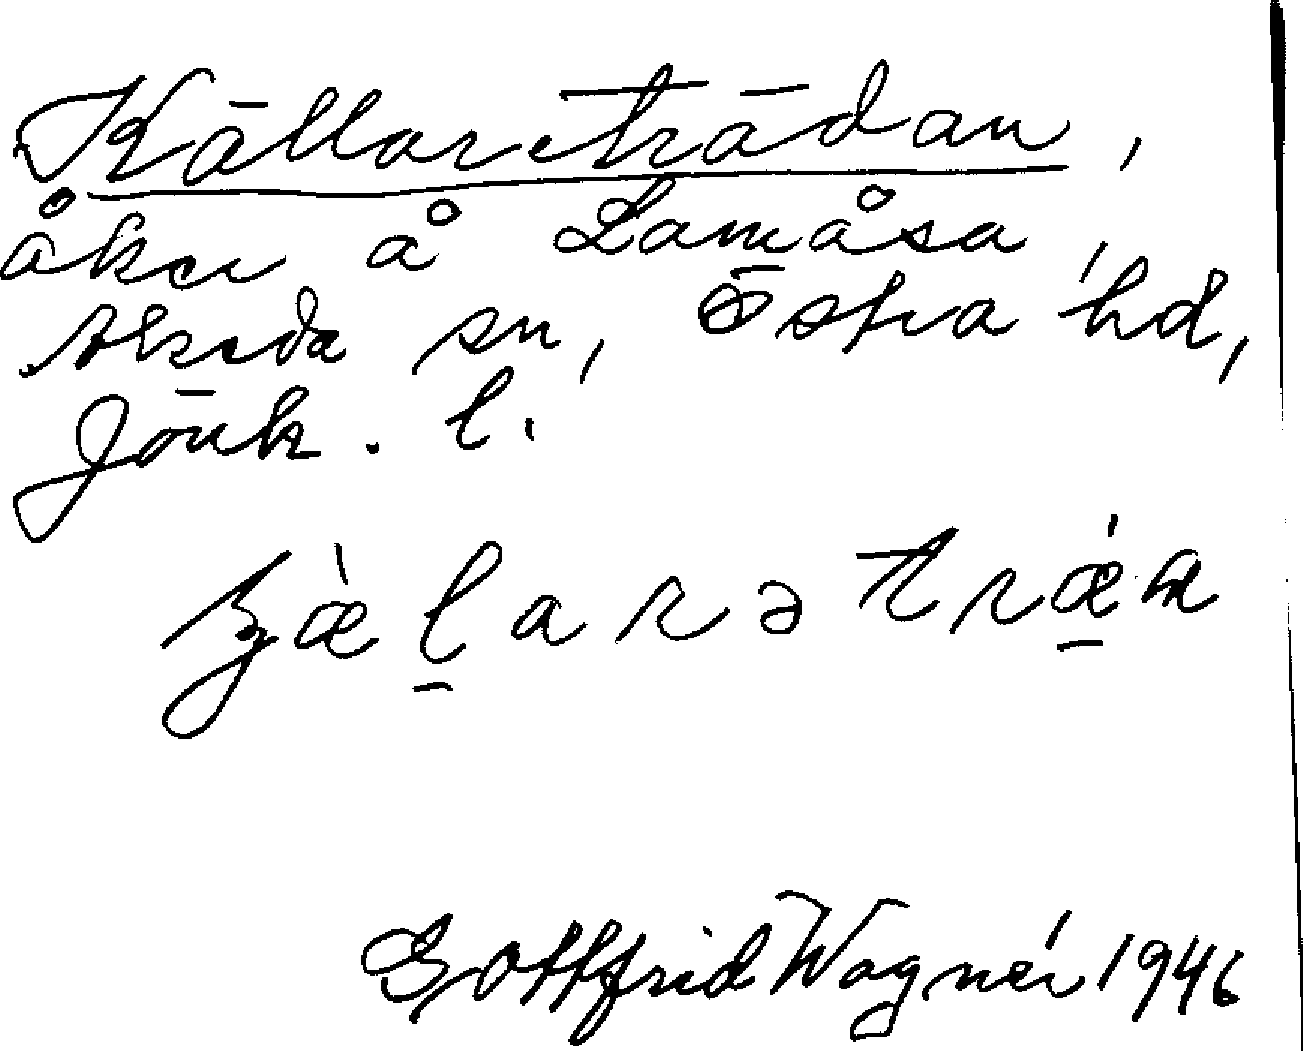 Källareträdan,
åker å Lamåsa,
Alseda sn, Östra hd,
Jönk. l.
Gottfrid Wagnér 1946